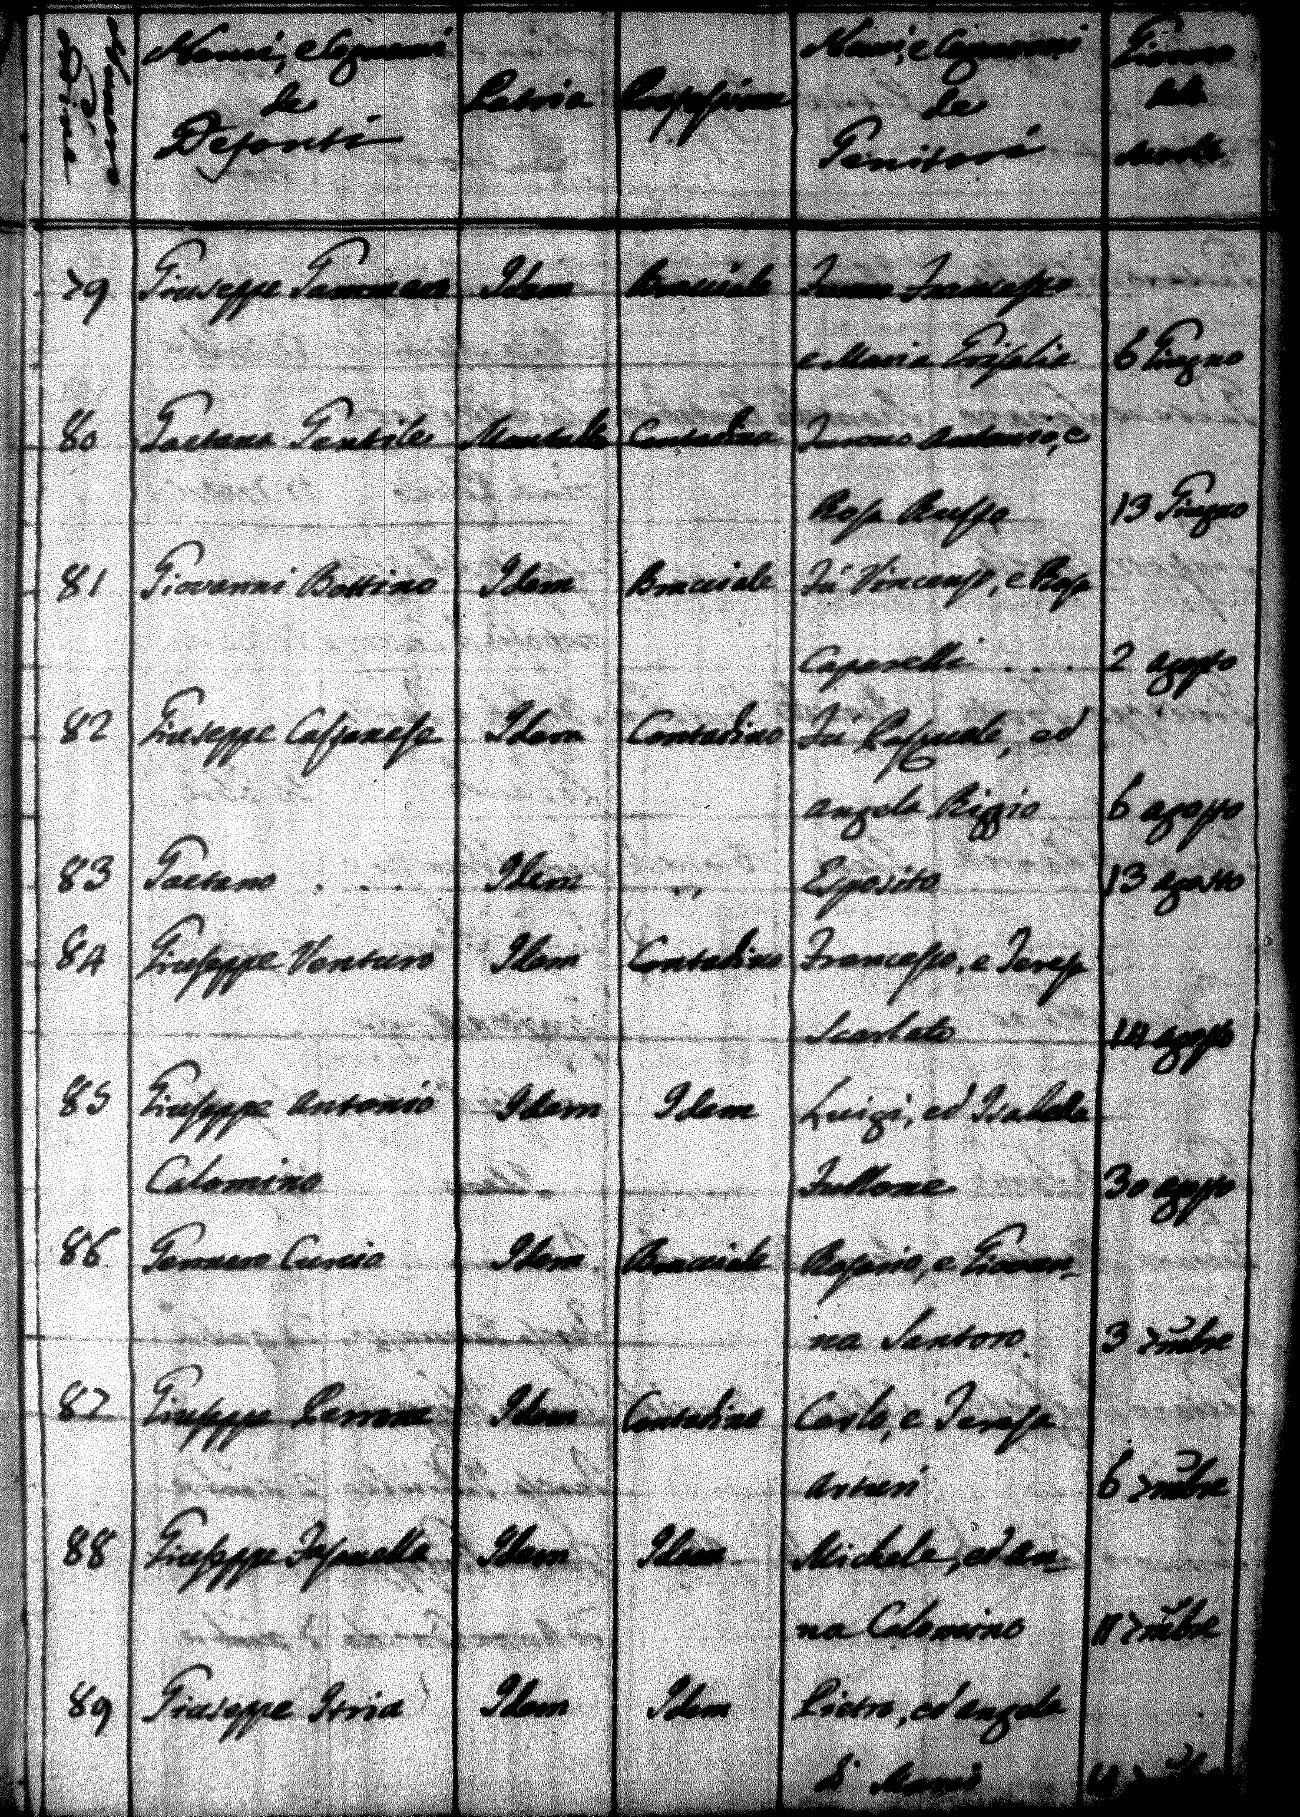 Nomi, e Cognomi
de
Defonti
Patria
Professione
Nomi, e Cognomi
de
Genitori
Giorno
della
morte
79 Giuseppe Idem Bracciale Francesco
e Maria 6 Giugno
80 Gaetana Gentile Contadina Antonio, e
Rosa Russo 13 Giugno
81 Giovanni Bottino Idem Bracciale Fù Vincenzo, e Rosa
Caparelli . . . 2 agosto
82 Giuseppe Cassanese Idem Contadino Fù Pasquale, ed
Angela Riggio 6 agosto
83 Gaetano . . . Idem Esposito 13 agosto
84 Giuseppe Venturo Idem Contadino Francesco, e Teresa
Scarlato 14 agosto
85 Giuseppe Antonio Idem Idem Luigi, ed Isabella
Calomino Fullone 30 agosto
86 Gennaro Curcio Idem Bracciale Rosario, e Giovan=
na Santoro 3 7mbre
87 Giuseppe Perrone Idem Contadino Carlo, e Teresa
Arturi 6 7mbre
88 Giuseppe Fasanella Idem Idem Michele, ed An=
na Calomino 11 7mbre
89 Giuseppe Idem Idem Pietro, ed Angela